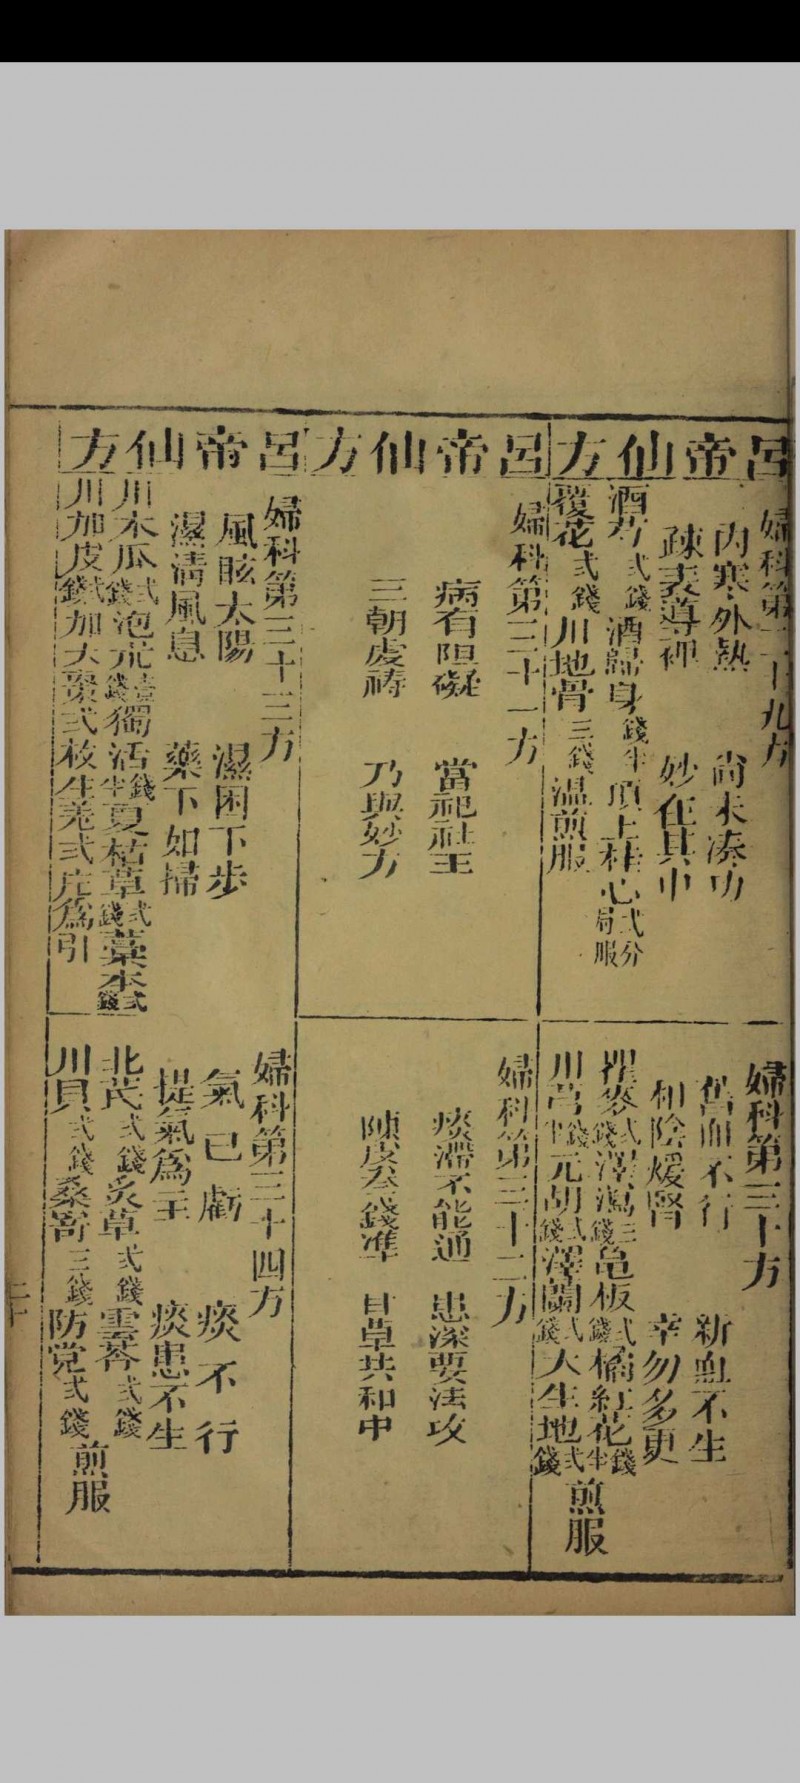 呂帝仙方
婦科第二十九方
內寒外熱　尚未湊功
疎表導裡　妙在其中
酒芍弍錢酒歸身錢半頂上桂心弍分局服
覆花弍錢川地骨三錢溫煎服
婦科第三十方
舊血不行　新血不生
和陰煖腎　幸勿多更
瞿麥弍錢澤瀉三錢亀板弍錢橘紅花錢半
川芎錢半元胡弍錢澤蘭弍錢大生地弍錢
煎服
呂帝仙方
婦科第三十一方
病有阻礙　當祀社王
三朝虔祷　乃與妙方
婦科第三十二方
痰滯不能通　患深要法攻
陳皮叁錢準　甘草共和中
呂帝仙方
婦科第三十三方
風眩太陽　濕困下步
濕清風息　藥下如掃
川木瓜弍錢泡元壹錢獨活錢半夏枯草弍錢藁本弍錢
川加皮弍錢加大棗弍枚生羗弍片為引
婦科第三十四方
氣已虧　痰不行
提氣為主　痰患不生
北芪弍錢炙草弍錢雲苓弍錢
川貝弍錢桑寄三錢防党弍錢
煎服
二十